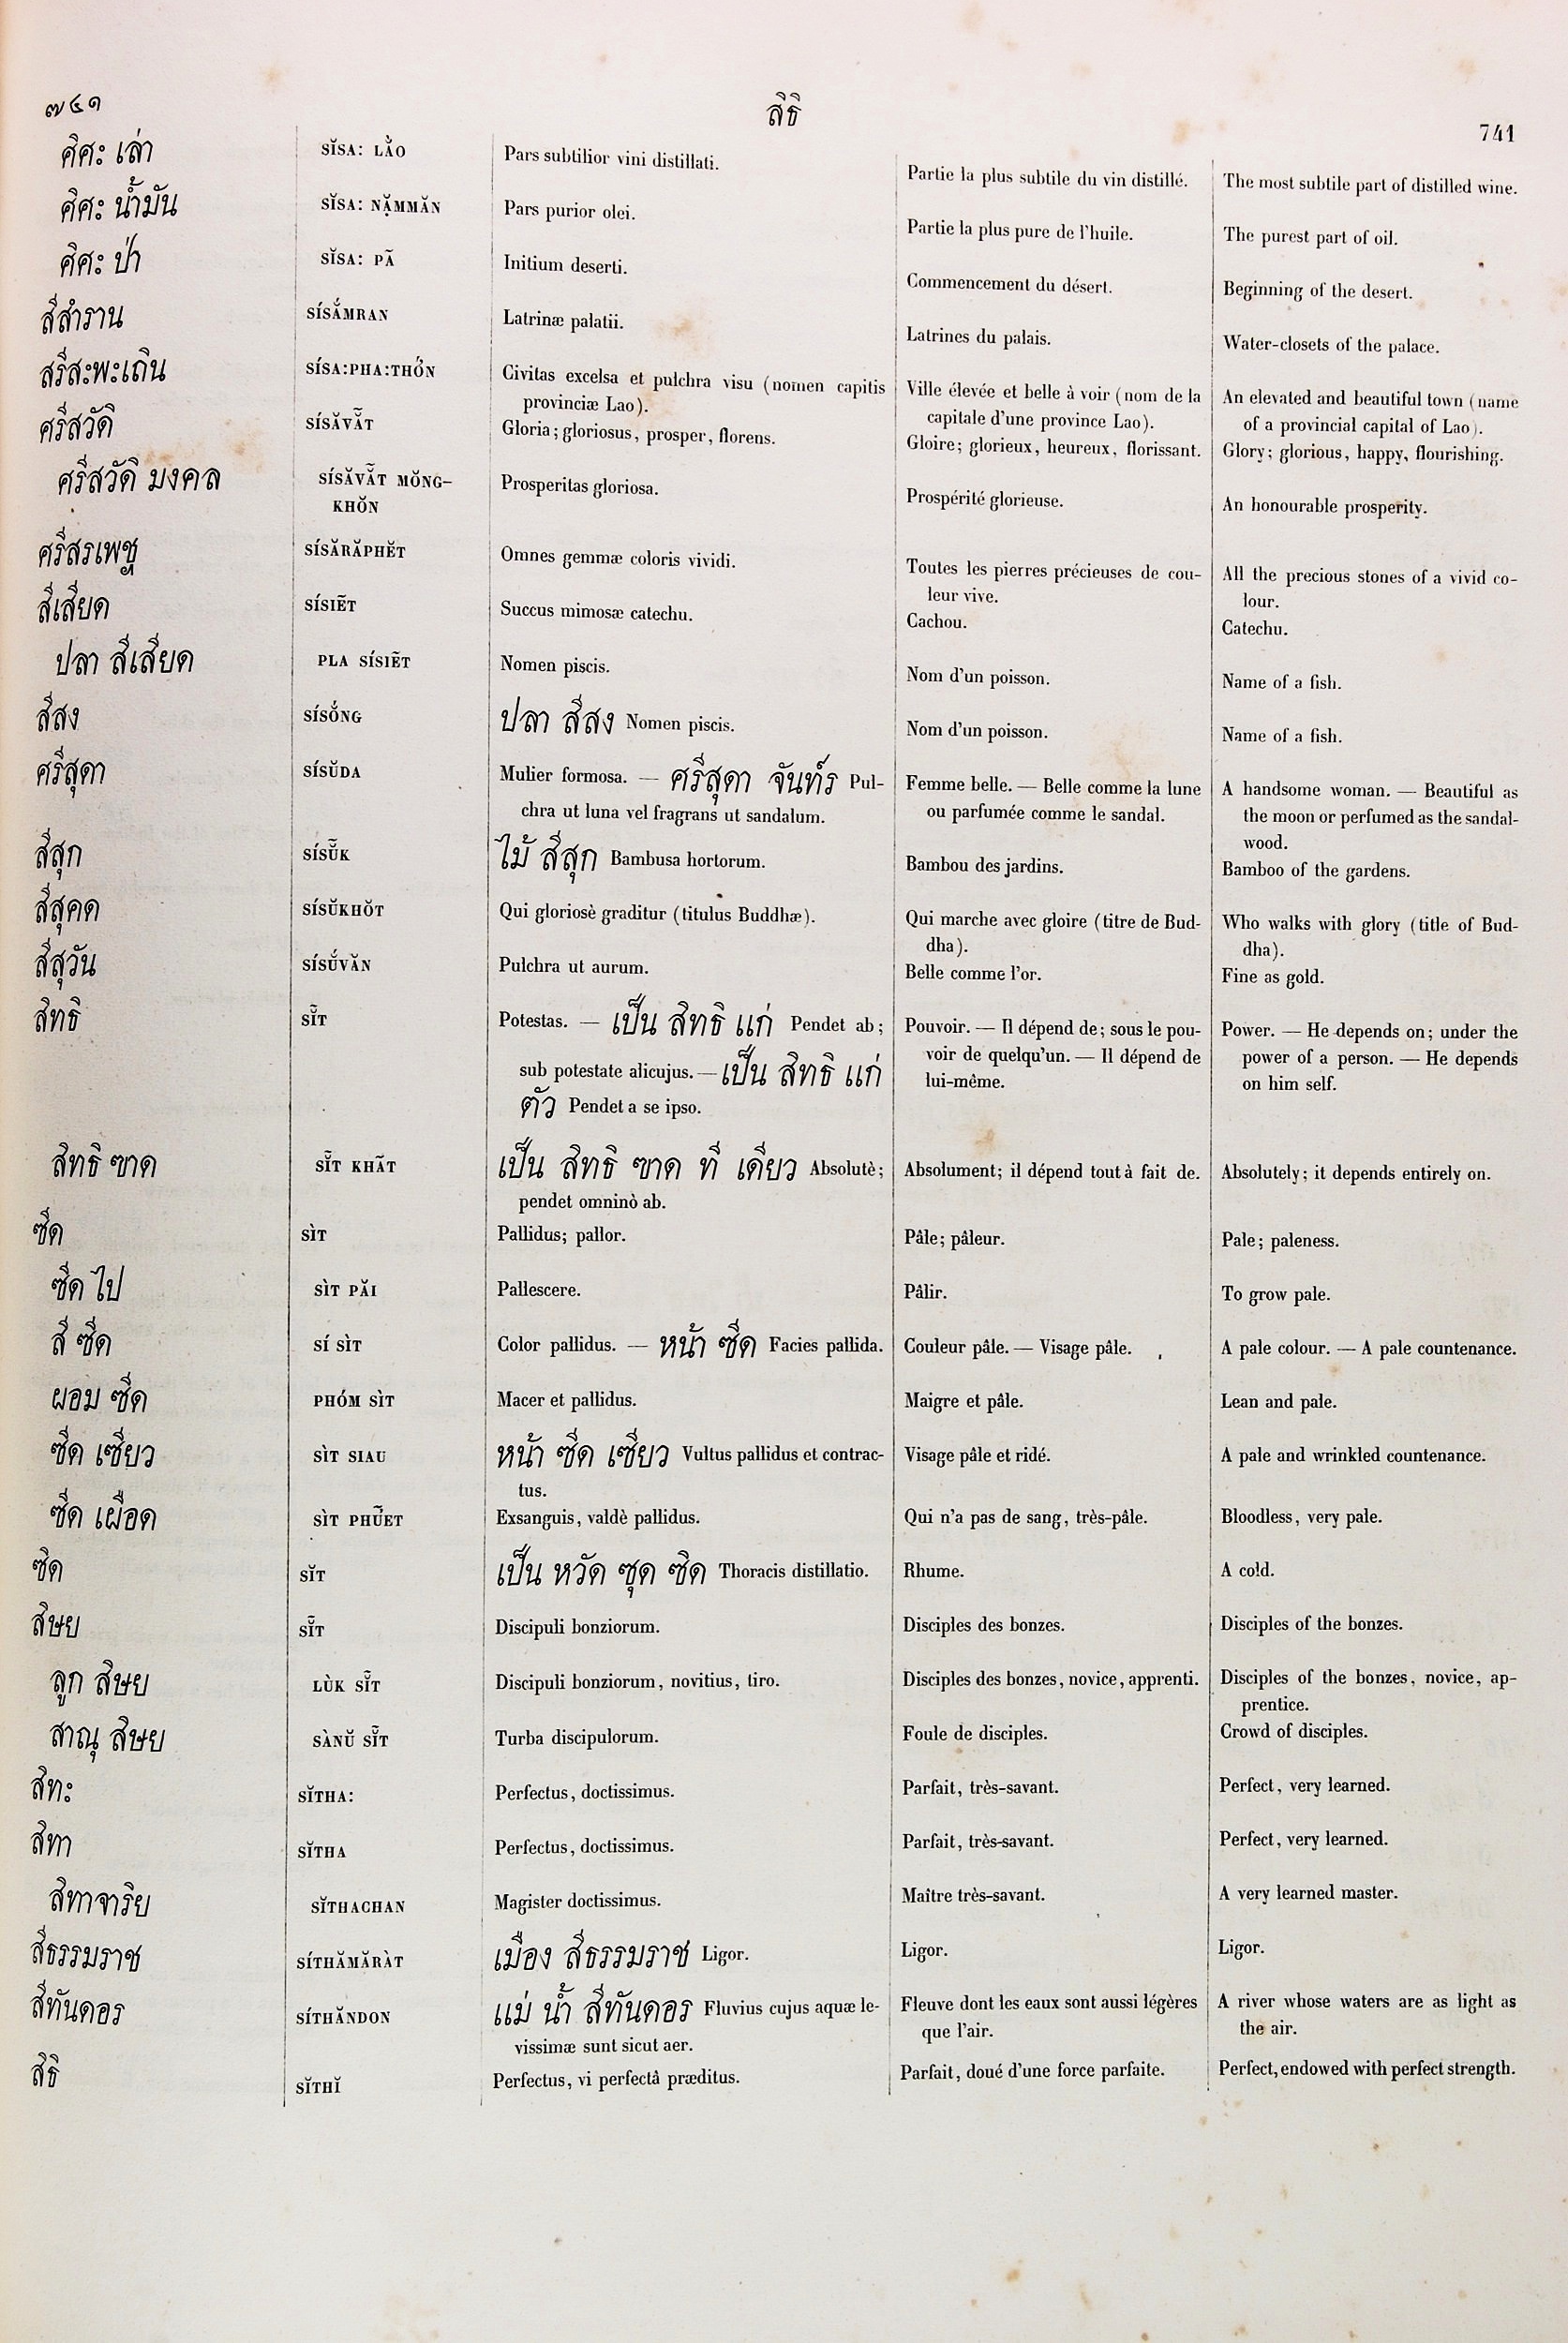 ๗๔๑ สิธิ 741
ศิศะ เล่า SĬSA: LẢO Pars subtilior vini distillati. Partie la plus subtile du vin distillé. The most subtile part of distilled wine.
ศิศะ น้ำมัน SĬSA: NẶMMĂN Pars purior olei. Partie la plus pure de l'huile. The purest part of oil.
ศิศะ ป่า SĬSA: PÃ Initium deserti. Commencement du désert. Beginning of the desert.
สีสำราน SÍSẮMRAN Latrinæ palatii. Latrines du palais. Water-closets of the palace.
สรีสะพะเถิน SÍSA:PHA:THỚN Civitas excelsa et pulchra visu (nomen capitis Ville élevée et belle à voir (nom de la An elevated and beautiful town (name
provinciæ Lao). capitale d'une province Lao). of a provincial capital of Lao).
ศรีสวัดิ SÍSĂVẴT Gloria; gloriosus, prosper, florens. Gloire; glorieux, heureux, florissant. Glory; glorious, happy, flourishing.
ศรีสวัดิ มงคล SÍSĂVẴT MŎNG- Prosperitas gloriosa. Prospérité glorieuse. An honourable prosperity.
KHŎN
ศรีสรเพชฺ SÍSĂRĂPHĔT Omnes gemmæ coloris vividi. Toutes les pierres précieuses de cou- All the precious stones of a vivid co-
leur vive. lour.
สีเสียด SÍSIẼT Succus mimosæ catechu. Cachou. Catechu.
ปลา สีเสียด PLA SÍSIẼT Nomen piscis. Nom d'un poisson. Name of a fish.
สีสง SÍSŎ́NG ปลา สีสง Nomen piscis. Nom d'un poisson. Name of a fish.
ศรีสุดา SÍSŬDA Mulier formosa. — ศรีสุดา จันท์ร Pul- Femme belle. — Belle comme la lune A handsome woman. — Beautiful as
chra ut luna vel fragrans ut sandalum. ou parfumée comme le sandal. the moon or perfumed as the sandal-
wood.
สีสุก SÍSŬ̃K ไม้ สีสุก Bambusa hortorum. Bambou des jardins. Bamboo of the gardens.
สีสุคด SÍSŬKHŎT Qui gloriosè graditur (titulus Buddhæ). Qui marche avec gloire (titre de Bud- Who walks with glory (title of Bud-
dha). dha).
สีสุวัน SÍSŬ́VĂN Pulchra ut aurum. Belle comme l'or. Fine as gold.
สิทธิ SĬ̃T Potestas. — เป็น สิทธิ แก่ Pendet ab; Pouvoir. — Il dépend de; sous le pou- Power. — He depends on; under the
sub potestate alicujus. — เป็น สิทธิ แก่ voir de quelqu'un. — Il dépend de power of a person. — He depends
ตัว Pendet a se ipso. lui-même. on him self.
สิทธิ ฃาด SĬ̃T KHÃT เป็น สิทธิ ฃาด ที เดียว Absolutè; Absolument; il dépend tout à fait de. Absolutely; it depends entirely on.
pendet omninò ab.
ซีด SÌT Pallidus; pallor. Pâle; pâleur. Pale; paleness.
ซีด ไป SÌT PĂI Pallescere. Pâlir. To grow pale.
สี ซีด SÍ SÌT Color pallidus. — หน้า ซีด Facies pallida. Couleur pâle. — Visage pâle. A pale colour. — A pale countenance.
ผอม ซีด PHÓM SÌT Macer et pallidus. Maigre et pâle. Lean and pale.
ซีด เซียว SÌT SIAU หน้า ซีด เซียว Vultus pallidus et contrac- Visage pâle et ridé. A pale and wrinkled countenance.
tus.
ซีด เผือด SÌT PHŨET Exsanguis, valdè pallidus. Qui n'a pas de sang, très-pâle. Bloodless, very pale.
ซิด SĬT เป็น หวัด ซุด ซิด Thoracis distillatio. Rhume. A cold.
สิษย SĬ̃T Discipuli bonziorum. Disciples des bonzes. Disciples of the bonzes.
ลูก สิษย LÙK SĬ̃T Discipuli bonziorum, novitius, tiro. Disciples des bonzes, novice, apprenti. Disciples of the bonzes, novice, ap-
prentice.
สาณุ สิษย SÀNŬ SĬ̃T Turba discipulorum. Foule de disciples. Crowd of disciples.
สิทะ SĬTHA: Perfectus, doctissimus. Parfait, très-savant. Perfect, very learned.
สิทา SĬTHA Perfectus, doctissimus. Parfait, très-savant. Perfect, very learned.
สิทาจาริย SĬTHACHAN Magister doctissimus. Maître très-savant. A very learned master.
สีธรรมราช SÍTHĂMĂRÀT เมือง สีธรรมราช Ligor. Ligor. Ligor.
สีทันดอร SÍTHĂNDON แม่ น้ำ สีทันดอร Fluvius cujus aquæ le- Fleuve dont les eaux sont aussi légères A river whose waters are as light as
vissimæ sunt sicut aer. que l'air. the air.
สิธิ SĬTHĬ Perfectus, vi perfectâ præditus. Parfait, doué d'une force parfaite. Perfect, endowed with perfect strength.